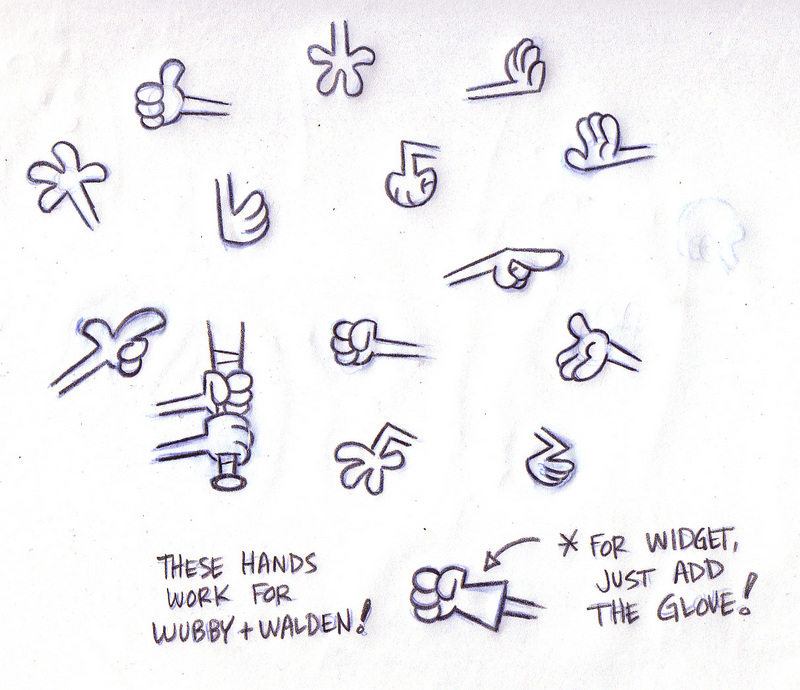 THESE HANDS
WORK FOR
WUBBY + WALDEN!
* FOR WIDGET,
JUST ADD
THE GLOVE!